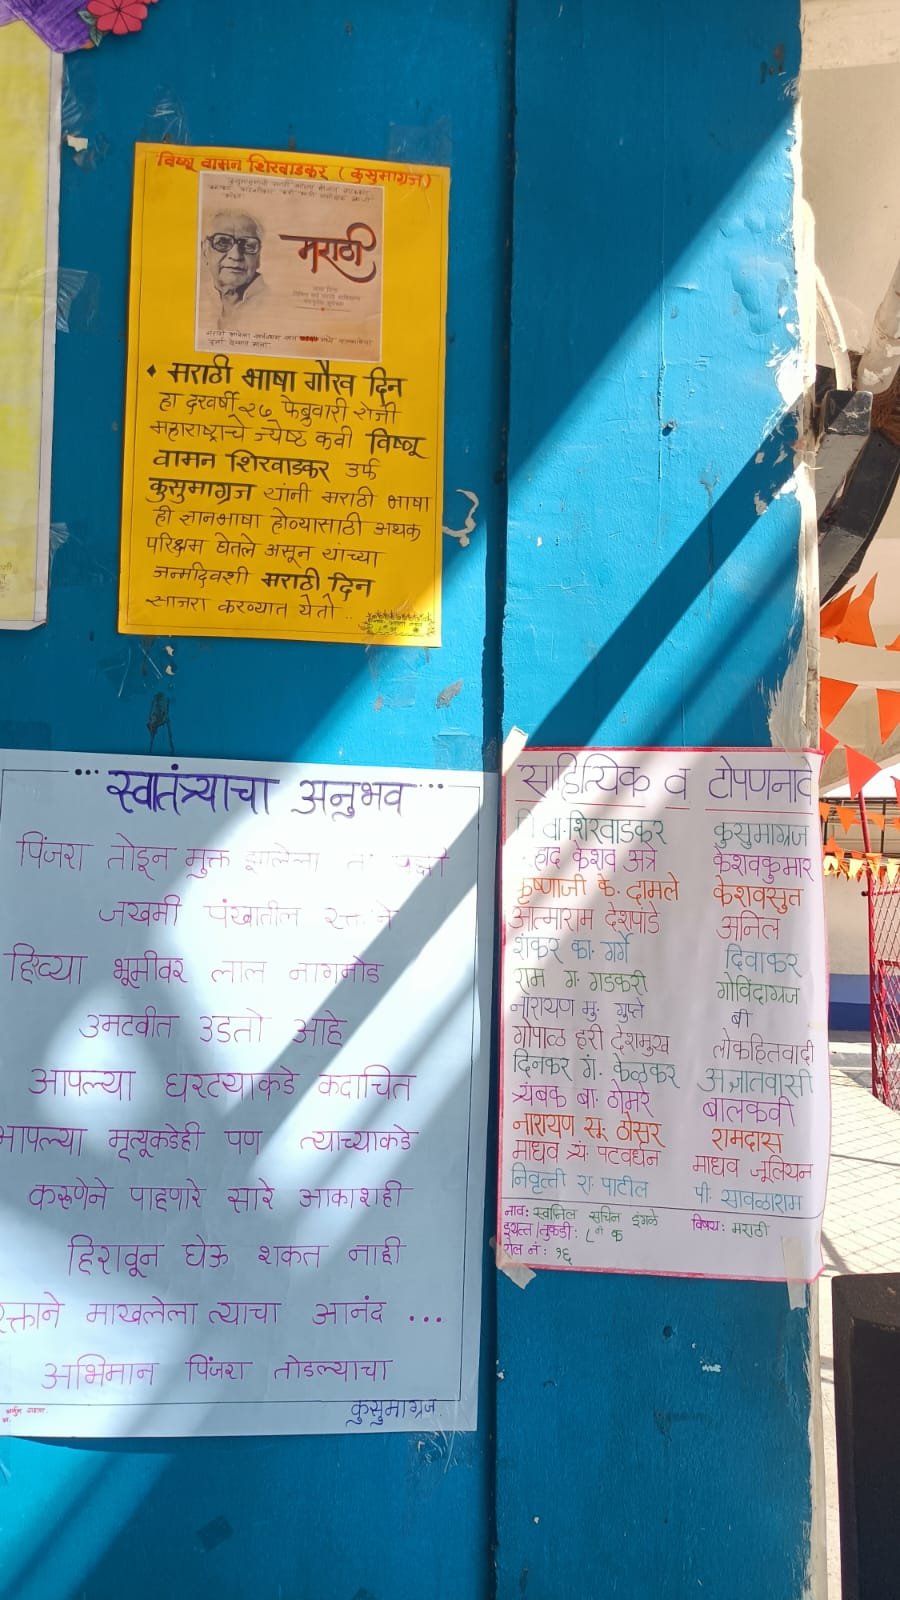 विष्णू वामन शिरवाडकर (कुसुमाग्रज)
मराठी
• मराठी भाषा गौरव दिन
हा दरवर्षी २७ फेब्रुवारी रोजी
महाराष्ट्राचे ज्येष्ठ कवी विष्णू
वामन शिरवाडकर उर्फ
कुसुमाग्रज यांनी मराठी भाषा
ही ज्ञानभाषा होण्यासाठी अथक
परिश्रम घेतले असून यांच्या
जन्मदिवशी मराठी दिन
साजरा करण्यात येतो ..
... स्वातंत्र्याचा अनुभव ...
पिंजरा तोडून मुक्त झालेला पक्षी
जखमी पंखातील
हिरव्या भूमीवर लाल नागमोड
उमटवीत उडतो आहे
आपल्या घरट्याकडे कदाचित
आपल्या मृत्यूकडेही पण त्याच्याकडे
करूणेने पाहणारे सारे आकाशही
हिरावून घेऊ शकत नाही
रक्ताने माखलेला त्याचा आनंद ...
अभिमान पिंजरा तोडल्याचा
कुसुमाग्रज.
साहित्यिक व टोपणनावे
वि वा. शिरवाडकर कुसुमाग्रज
केशव अत्रे केशवकुमार
कृष्णाजी के. दामले केशवसुत
आत्माराम देशपांडे अनिल
शंकर का. गर्गे दिवाकर
राम ग. गडकरी गोविंदाग्रज
नारायण मु. गुप्ते बी
गोपाळ हरी देशमुख लोकहितवादी
दिनकर गं. केळकर अज्ञातवासी
त्र्यंबक बा. ठोमरे बालकवी
नारायण सू. ठोसर रामदास
माधव त्र्यं. पटवर्धन माधव जूलियन
निवृत्ती रा. पाटील पी. सावळाराम
नाव: स्वप्निल सचिन इंगळे विषय: मराठी
इयत्ता/तुकडी: ८ वी क
रोल नं: १६